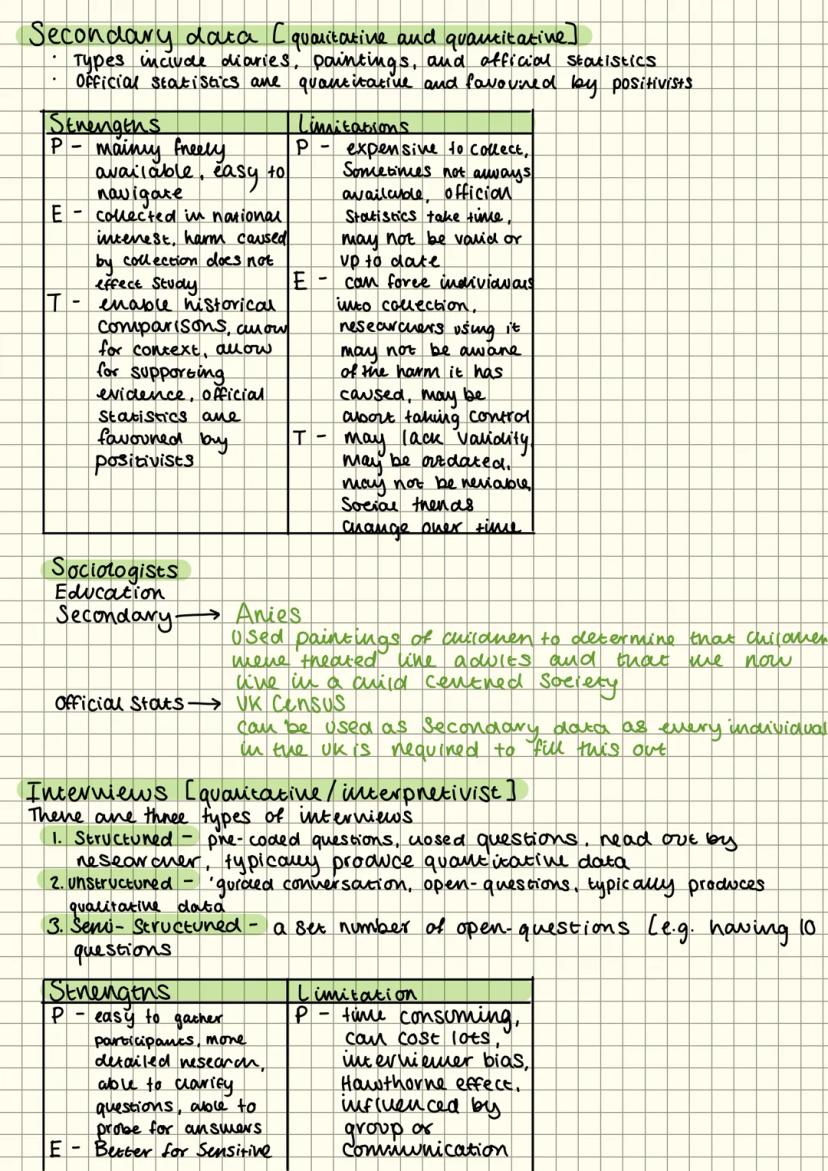 Secondary data [qualitative and quantitative]
· Types include diaries, paintings, and official statistics
· Official statistics are quantitative and favoured by positivists
Strengths
P - mainly freely
available, easy to
navigate
E - collected in national
interest, harm caused
by collection does not
effect study
T - enable historical
comparisons, allow
for context, allow
for supporting
evidence, official
statistics are
favoured by
positivists
Limitations
P - expensive to collect,
Sometimes not always
available, official
Statistics take time,
may not be valid or
up to date
E - can force individuals
into collection,
researchers using it
may not be aware
of the harm it has
caused, may be
about taking control
T - may lack validity
may be outdated,
may not be reliable,
Social trends
change over time
Sociologists
Education
Secondary → Aries
Used paintings of children to determine that children
were treated like adults and that we now
live in a child centred society
Official Stats → UK Census
can be used as Secondary data as every individual
in the UK is required to fill this out
Interviews [qualitative/interpretivist]
There are three types of interviews
1. Structured - pre-coded questions, closed questions, read out by
researcher, typically produce quantitative data
2. Unstructured - 'guided conversation, open-questions, typically produces
qualitative data
3. Semi-Structured - a set number of open-questions [e.g. having 10
questions
Strengths
P - easy to gather
participants, more
detailed research,
able to clarify
questions, able to
probe for answers
E - Better for Sensitive
Limitation
P - time consuming,
can cost lots,
interviewer bias,
Hawthorne effect,
influenced by
group or
communication